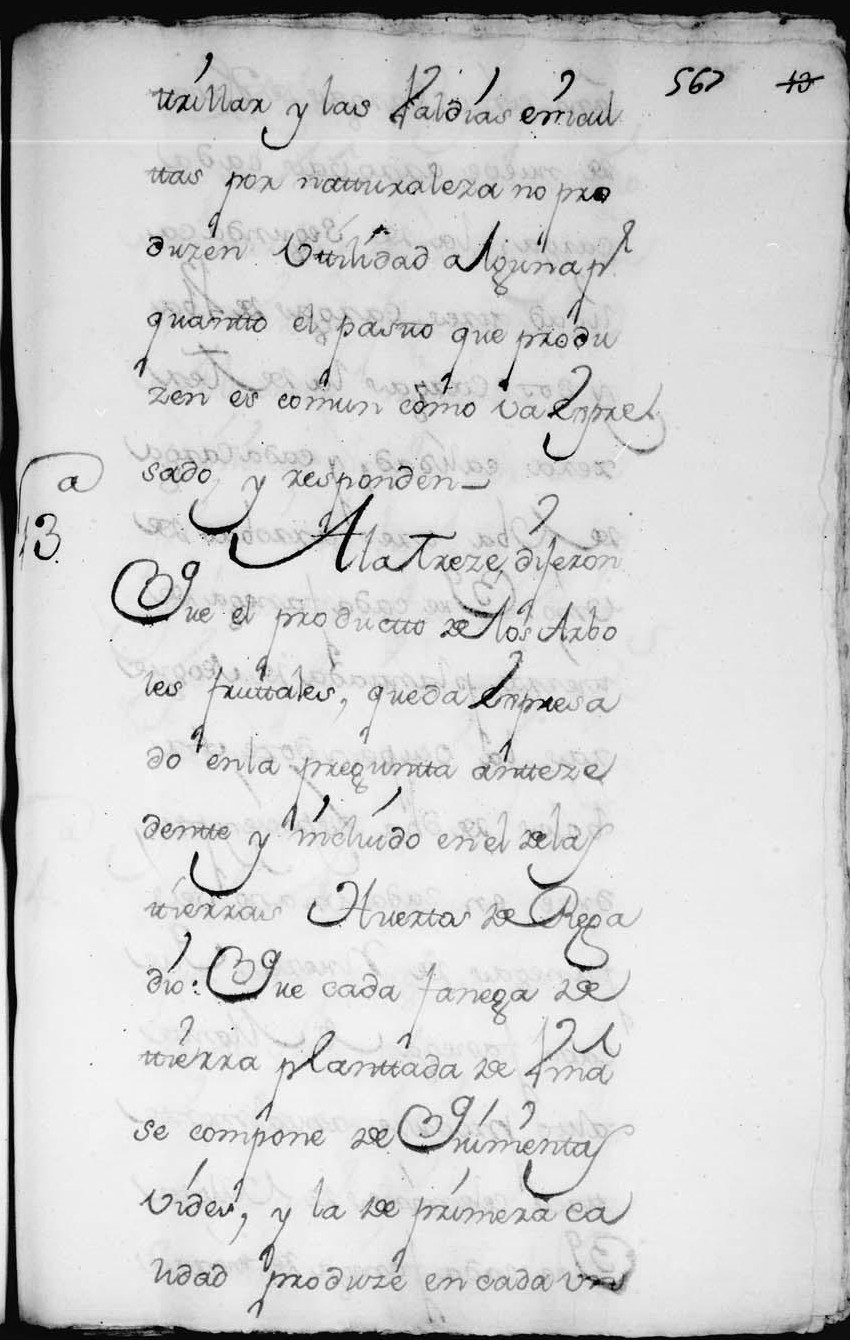 567 13
ttrillar y las Valdias e incul
ttas por natturaleza no pro
duzen Vttilidad alguna pr
quantto el pasto que produ
zen es comun como va Expre
sado, y responden_
13.a
A la Treze, dijeron
Que el producto de los Arbo
les fruttales, queda Expresa
do en la preguntta anteze
dentte y incluido en el de las
tierras Huertas de Rega
dio: Que cada fanega de
ttierra planttada de Viña
se compone de Quinientas
Vides, y la de primera ca
lidad produze en cada un